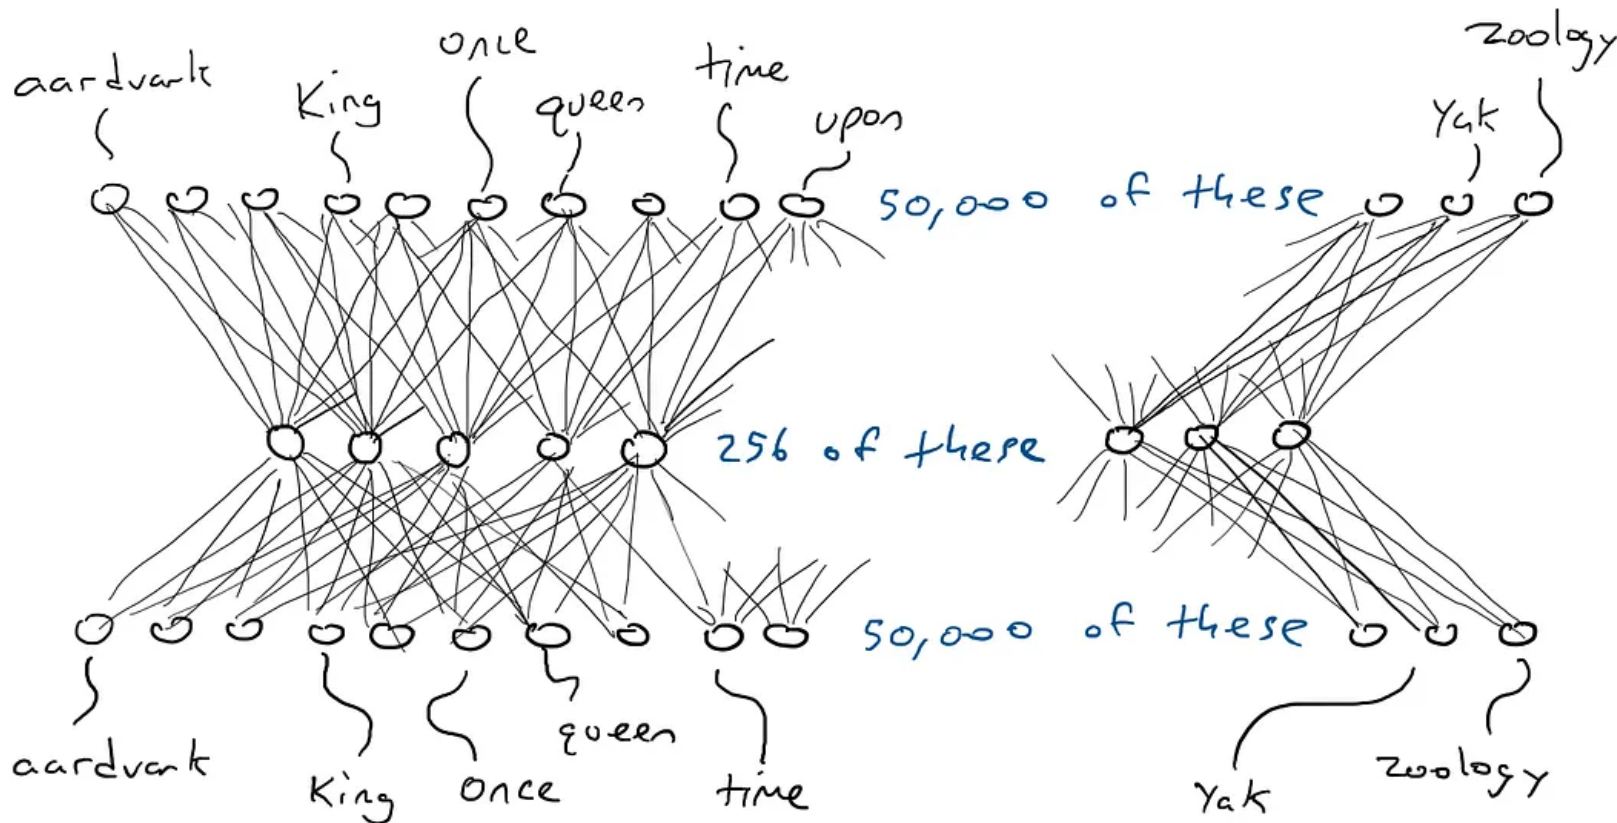 aardvark
King
once
queen
time
upon
Yak
zoology
50,000 of these
256 of these
50,000 of these
aardvark
King
once
queen
time
Yak
zoology